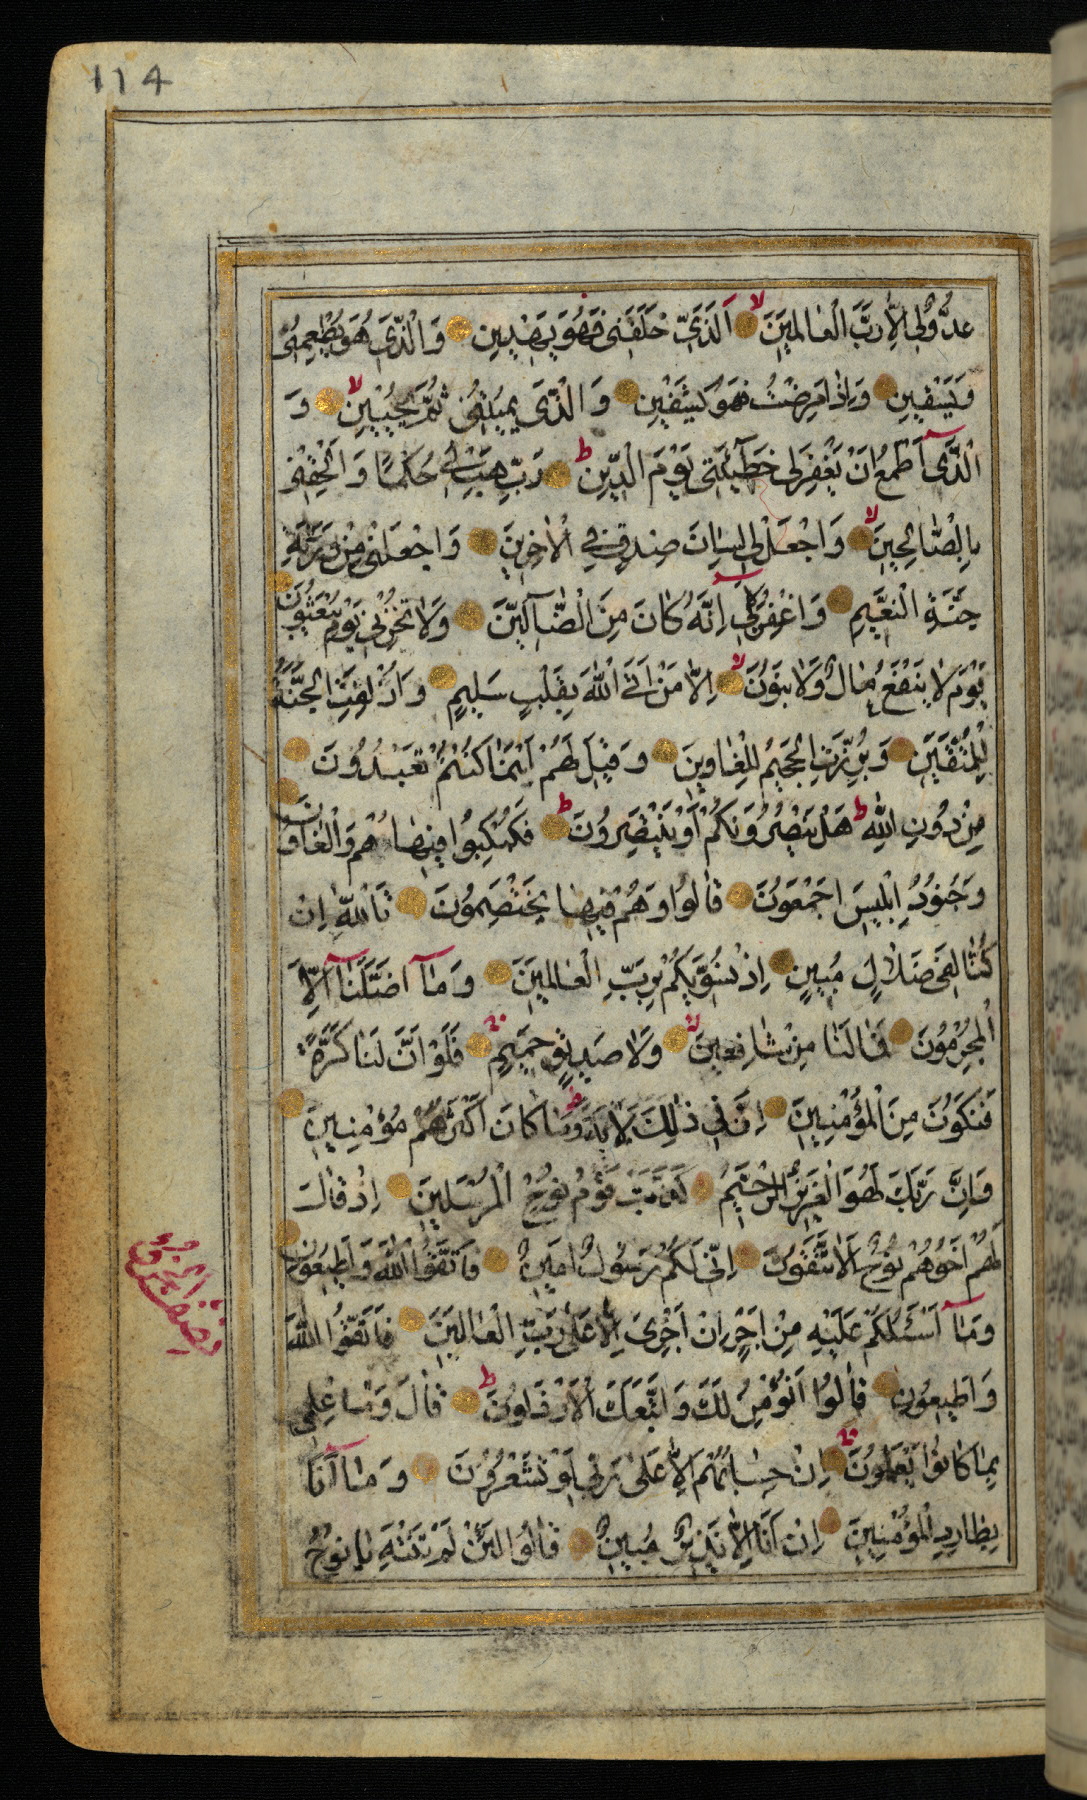 ١١٤
عَدُوٌّ لِي إِلَّا رَبَّ الْعَالَمِينَ اَلَّذِي خَلَقَنِي فَهُوَ يَهْدِينِ وَالَّذِي هُوَ يُطْعِمُنِي
وَيَسْقِينِ وَإِذَا مَرِضْتُ فَهُوَ يَشْفِينِ وَالَّذِي يُمِيتُنِي ثُمَّ يُحْيِينِ وَ
الَّذِي أَطْمَعُ أَنْ يَغْفِرَ لِي خَطِيئَتِي يَوْمَ الدِّينِ رَبِّ هَبْ لِي حُكْمًا وَأَلْحِقْنِي
بِالصَّالِحِينَ وَاجْعَلْ لِي لِسَانَ صِدْقٍ فِي الْآخِرِينَ وَاجْعَلْنِي مِنْ وَرَثَةِ
جَنَّةِ النَّعِيمِ وَاغْفِرْ لِأَبِي إِنَّهُ كَانَ مِنَ الضَّآلِّينَ وَلَا تُخْزِنِي يَوْمَ يُبْعَثُونَ
يَوْمَ لَا يَنْفَعُ مَالٌ وَلَا بَنُونَ إِلَّا مَنْ أَتَى اللَّهَ بِقَلْبٍ سَلِيمٍ وَأُزْلِفَتِ الْجَنَّةُ
لِلْمُتَّقِينَ وَبُرِّزَتِ الْجَحِيمُ لِلْغَاوِينَ وَقِيلَ لَهُمْ أَيْنَمَا كُنْتُمْ تَعْبُدُونَ
مِنْ دُونِ اللَّهِ هَلْ يَنْصُرُونَكُمْ أَوْ يَنْتَصِرُونَ فَكُبْكِبُوا فِيهَا هُمْ وَالْغَاوُونَ
وَجُنُودُ إِبْلِيسَ أَجْمَعُونَ قَالُوا وَهُمْ فِيهَا يَخْتَصِمُونَ تَاللَّهِ إِنْ
كُنَّا لَفِي ضَلَالٍ مُبِينٍ إِذْ نُسَوِّيكُمْ بِرَبِّ الْعَالَمِينَ وَمَآ أَضَلَّنَآ إِلَّا
الْمُجْرِمُونَ فَمَا لَنَا مِنْ شَافِعِينَ وَلَا صَدِيقٍ حَمِيمٍ فَلَوْ أَنَّ لَنَا كَرَّةً
فَنَكُونَ مِنَ الْمُؤْمِنِينَ إِنَّ فِي ذَلِكَ لَآيَةً وَمَا كَانَ أَكْثَرُهُمْ مُؤْمِنِينَ
وَإِنَّ رَبَّكَ لَهُوَ الْعَزِيزُ الرَّحِيمُ كَذَّبَتْ قَوْمُ نُوحٍ الْمُرْسَلِينَ إِذْ قَالَ
لَهُمْ أَخُوهُمْ نُوحٌ أَلَا تَتَّقُونَ إِنِّي لَكُمْ رَسُولٌ أَمِينٌ فَاتَّقُوا اللَّهَ وَأَطِيعُونِ
وَمَآ أَسْئَلُكُمْ عَلَيْهِ مِنْ أَجْرٍ إِنْ أَجْرِيَ إِلَّا عَلَى رَبِّ الْعَالَمِينَ فَاتَّقُوا اللَّهَ
وَأَطِيعُونِ قَالُوا أَنُؤْمِنُ لَكَ وَاتَّبَعَكَ الْأَرْذَلُونَ قَالَ وَمَا عِلْمِي
بِمَا كَانُوا يَعْمَلُونَ إِنْ حِسَابُهُمْ إِلَّا عَلَى رَبِّي لَوْ تَشْعُرُونَ وَمَآ أَنَا
بِطَارِدِ الْمُؤْمِنِينَ إِنْ أَنَا إِلَّا نَذِيرٌ مُبِينٌ قَالُوا لَئِنْ لَمْ تَنْتَهِ يَا نُوحُ